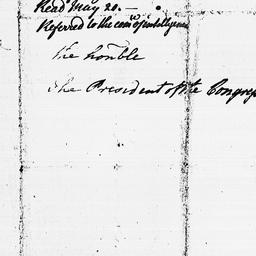 Read May 20. —
Referred to the comee of intelligence
the honble
The President of the Congress